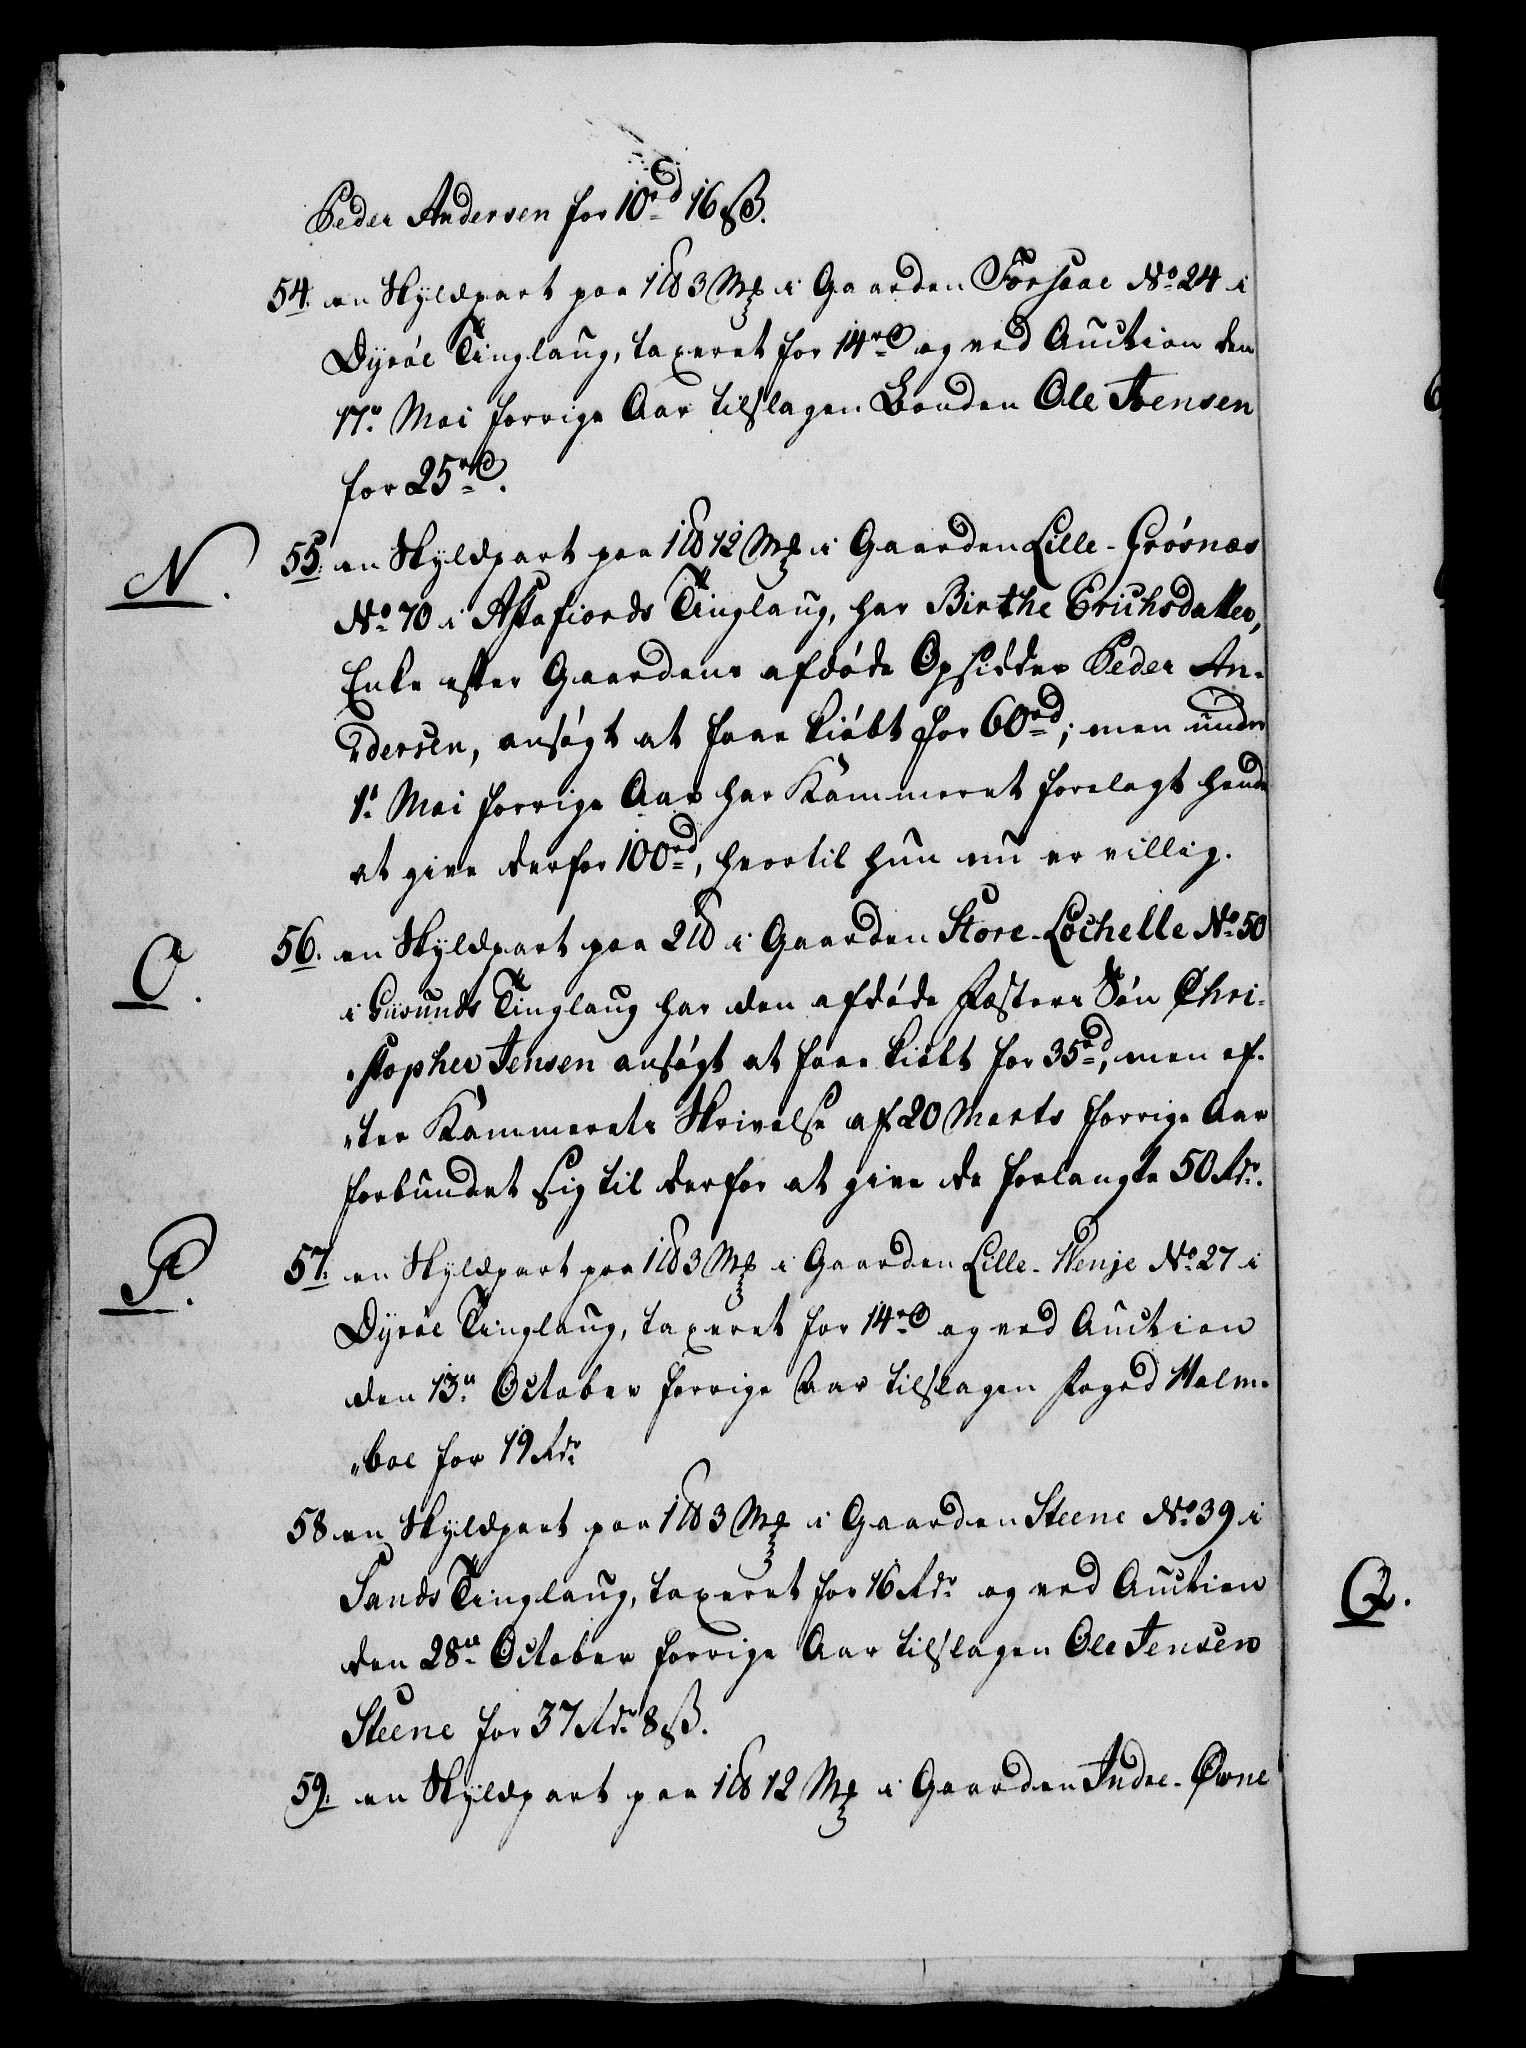 Peder Andersen for 10rd 16 ß.
54. en Skyldpart paa 1 ℔ 3 Mk i Gaarden Forsaae No. 24 i
Dyröe Tinglaug, taxeret for 14rd og ved Auction den
17n Mai forrige Aar tilslagen Bonden Ole Jensen
for 25rd.
N.
55. en Skyldpart paa 1 ℔ 12 Mk i Gaarden Lille-Grösnæs
No. 70 i Astafiords Tinglaug, har Birthe Erichsdatter,
Enke efter Gaardens afdöde Opsidder Peder An-
dersen, ansögt at faae kiöbt for 60rd; men under
1n Mai forrige Aar har Kammeret forelagt hende
at give derfor 100rd, hvortil hun nu er villig.
O.
56. en Skyldpart paa 2 ℔ i Gaarden Store-Lochelle No. 50
i Givunds Tinglaug har den afdöde Fæsters Sön Chri-
stopher Jensen ansögt at faae kiöbt for 35rd, men ef-
"ter Kammerets Skrivelse af 20 Marts forrige Aar
forbundet sig til derfor at give de forlangte 50 Rdr.
P.
57. en Skyldpart paa 1 ℔ 3 Mk i Gaarden Lille-Wenje No. 27 i
Dyröe Tinglaug, taxeret for 14rd og ved Auction
den 13n October forrige Aar tilslagen Foged Holm-
"boe for 19 Rdr.
58 en Skyldpart paa 1 ℔ 3 Mk i Gaarden Steene No. 39 i
Sands Tinglaug, taxeret for 16 Rdr. og ved Auction
den 28n October forrige Aar tilslagen Ole Jensen
Steene for 37 Rdr. 8 ß.
Q.
59. en Skyldpart paa 1 ℔ 12 Mk i Gaarden Indre-Øvne